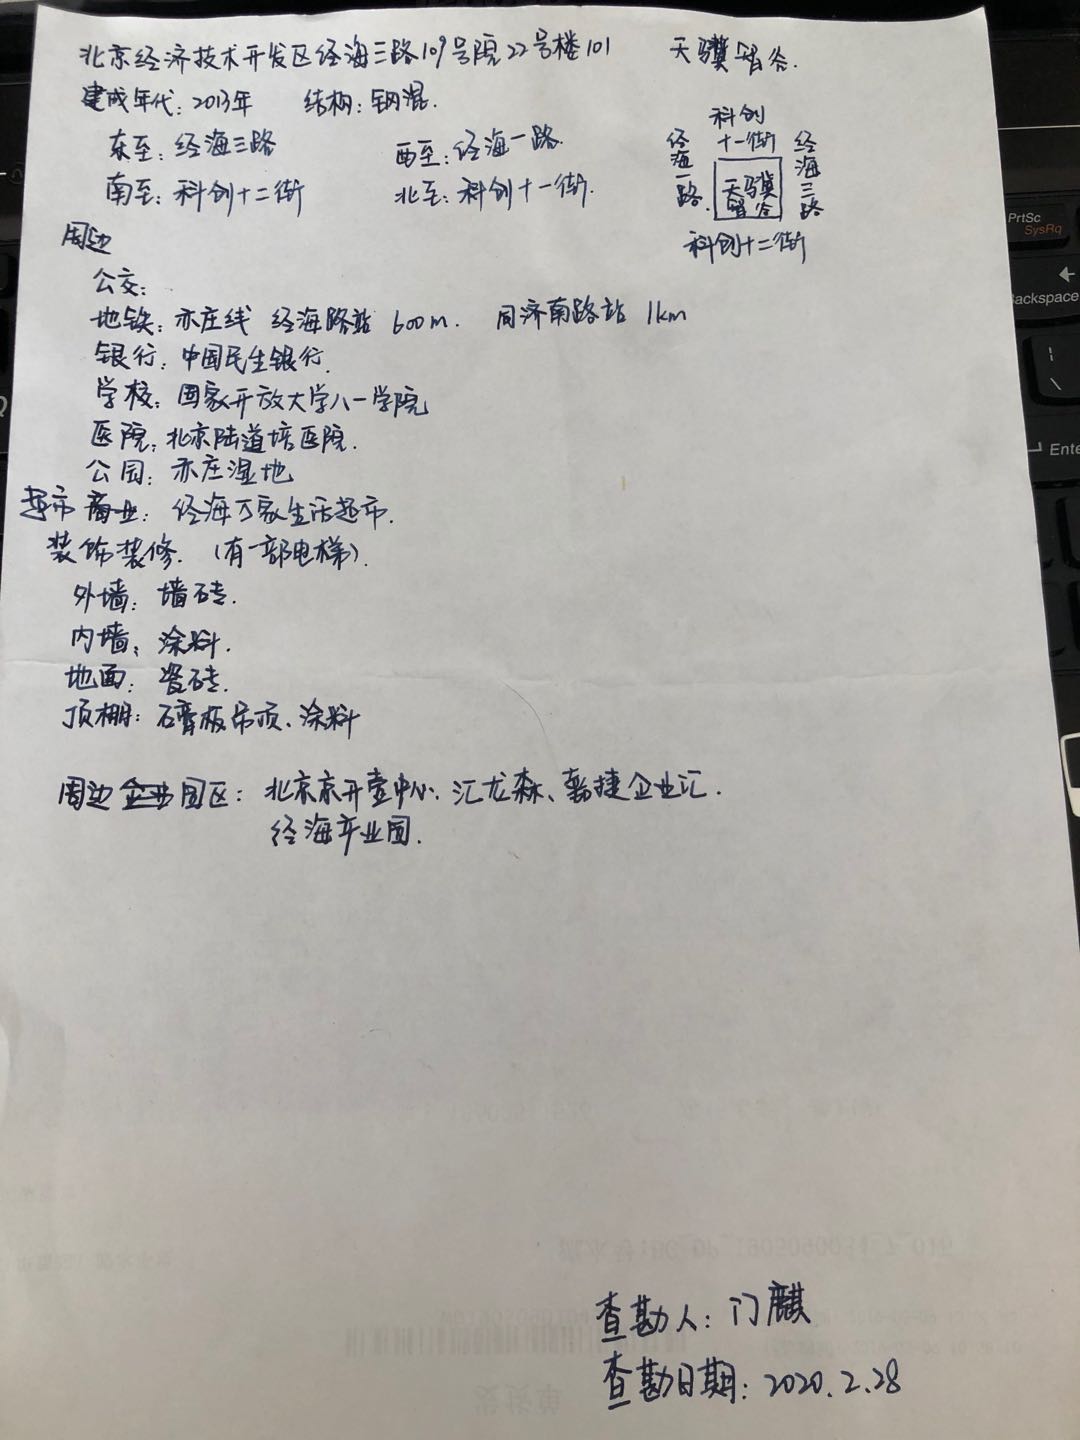 北京经济技术开发区经海三路109号院22号楼101 天骥智谷.
建成年代: 2013年 结构: 钢混.
东至: 经海三路 西至: 经海一路.
南至: 科创十二街 北至: 科创十一街.
科创
十一街
经海一路.
天骥
智谷
经海三路
科创十二街
周边
公交:
地铁: 亦庄线 经海路站 600m. 同济南路站 1km
银行: 中国民生银行.
学校: 国家开放大学八一学院
医院: 北京陆道培医院.
公园: 亦庄湿地
超市商业: 经海万家生活超市.
装饰装修. (有一部电梯).
外墙: 墙砖.
内墙: 涂料.
地面: 瓷砖.
顶棚: 石膏板吊顶、涂料
周边企业园区: 北京京开壹中心、汇龙森、嘉捷企业汇.
经海产业园.
查勘人: 门麒
查勘日期: 2020.2.28
PrtSc
SysRq
Backspace
Ente